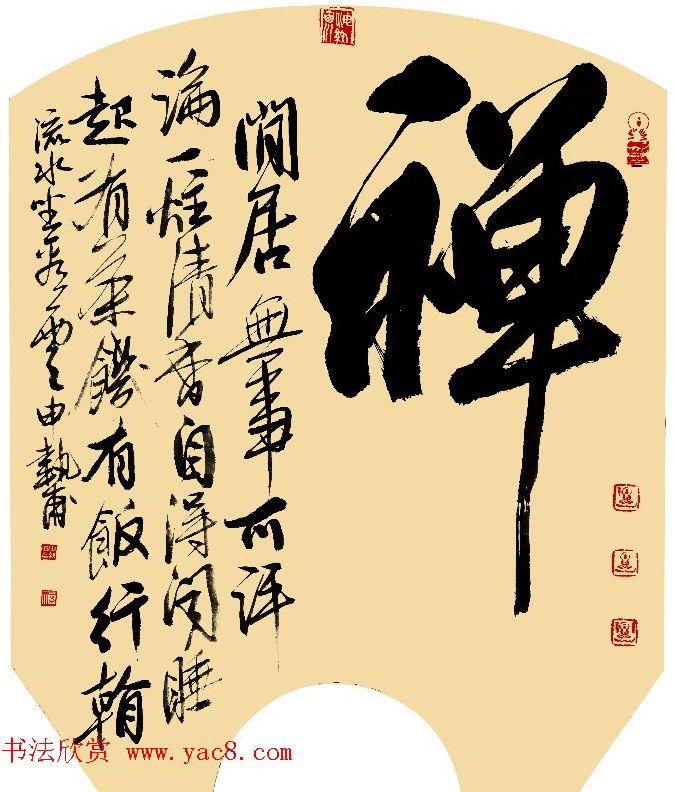 禪
閒居無事可評
論一炷清香自得聞睡
起有茶饑有飯行看
流水坐看雲 由執甫
书法欣赏 www.yac8.com